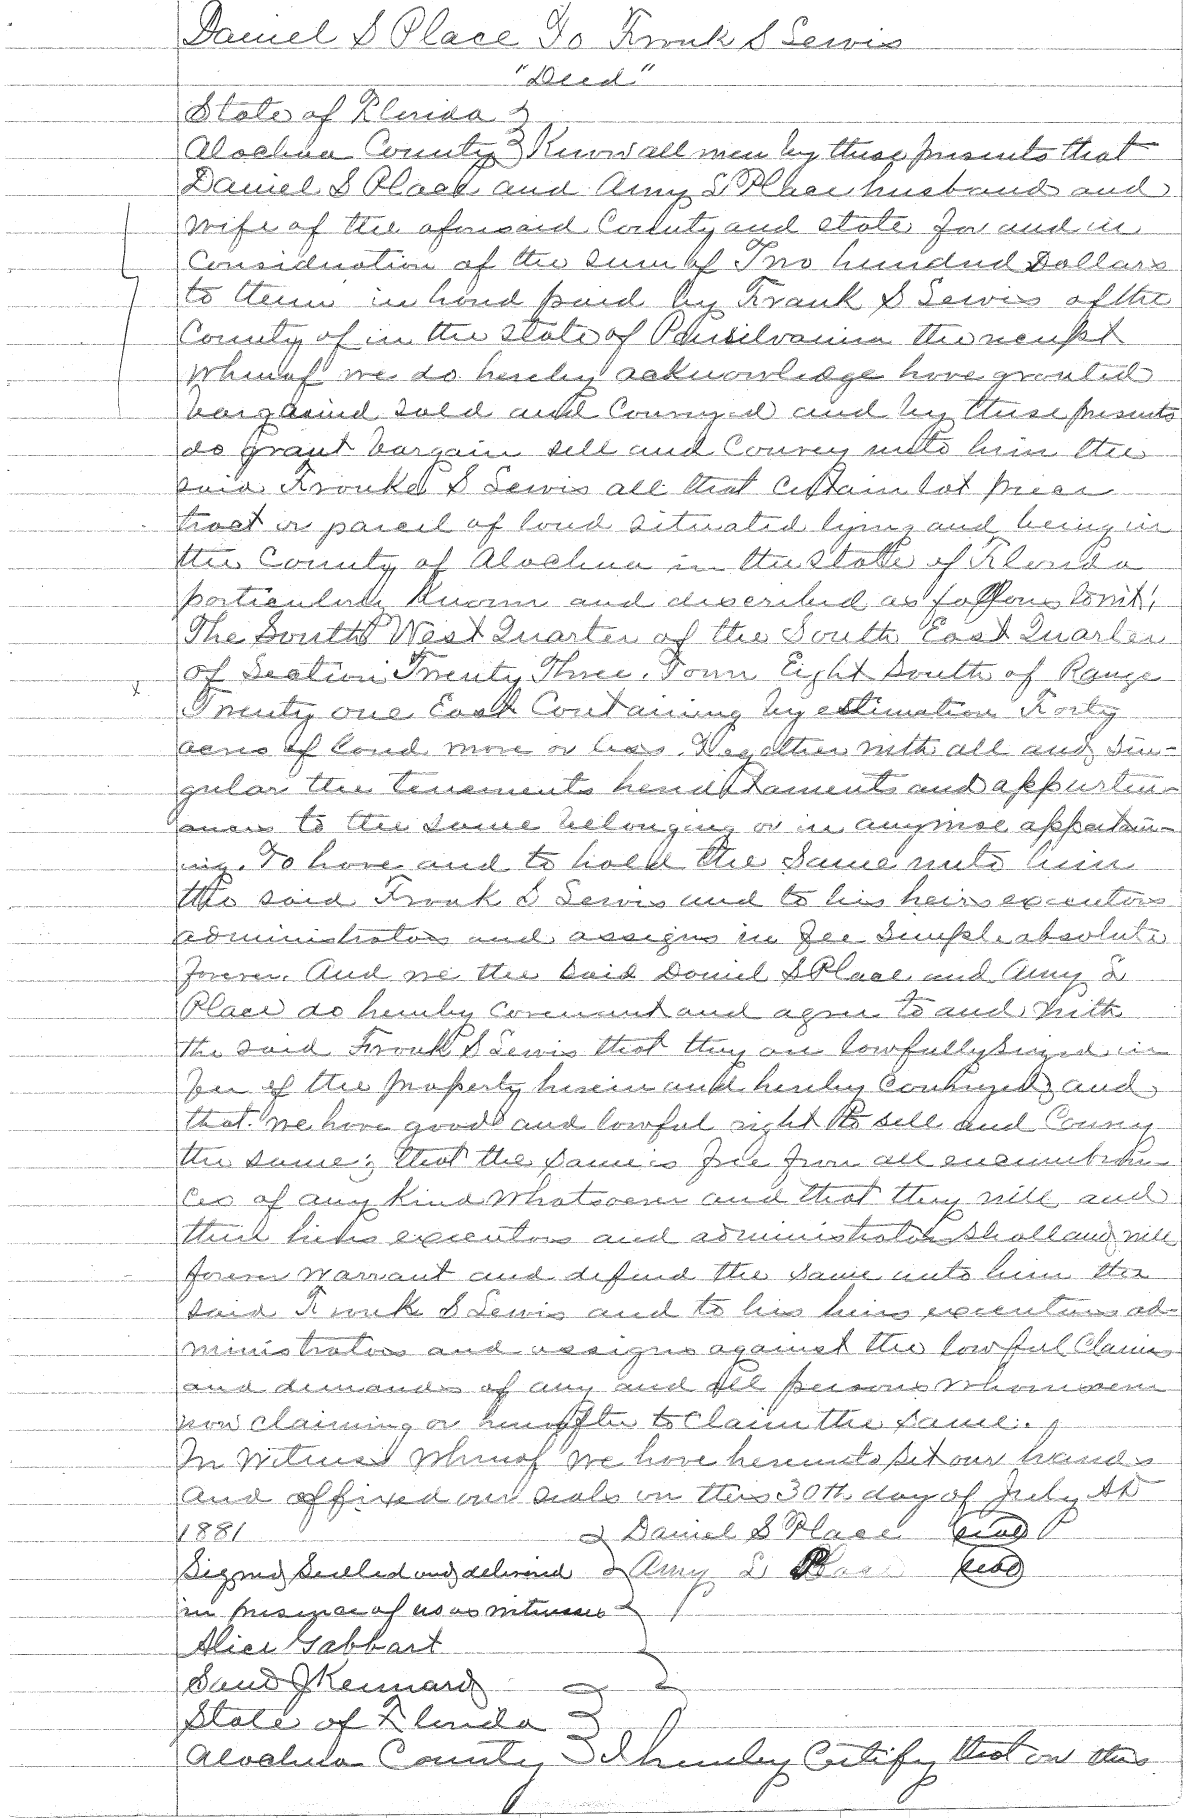 Daniel S Place To Frank S Lewis
"Deed"
State of Florida
Alachua County Know all men by these presents that
Daniel S Place and Amy L Place husband and
wife of the aforesaid County and state for and in
Consideration of the sum of Two hundred Dollars
to them in hand paid by Frank S Lewis of the
County of in the state of Pensilvania the receipt
whereof we do hereby acknowledge have granted
bargained sold and Conveyed and by these presents
do grant bargain sell and Convey unto him the
said Franke S Lewis all that certain lot piece
tract or parcel of land situated lying and being in
the County of Alachua in the State of Florida
particularly known and described as follows towit;
The South West Quarter of the South East Quarter
of Section Twenty Three. Town Eight South of Range
x Twenty one East Containing by estimation Forty
acres of land more or less. Together with all and sin-
gular the tenements hereditaments and appurten-
ances to the same belonging or in anywise appertain-
ing. To have and to hold the same unto him
the said Frank S Lewis and to his heirs executors
administrators and assigns in fee simple absolute
forever. And we the said Daniel S Place and Amy L
Place do hereby covenant and agree to and with
the said Frank S Lewis that they are lawfully siezed in
fee of the property herein and hereby conveyed and
that we have good and lawful right to sell and Convey
the same; that the same is free from all encumbran-
ces of any kind whatsoever and that they will and
their heirs executors and administrators shall and will
forever warrant and defend the same unto him the
said Frank S Lewis and to his heirs executors ad-
ministrators and assigns against the lawful Claims
and demands of any and all persons whomsoever
now claiming or hereafter to claim the same.
In Witness whereof we have hereunto set our hands
and affixed our seals on this 30th day of July AD
1881 Daniel S Place seal
Signed Sealled and delivered Amy L Place seal
in presence of us as witnesses
Alice Gabbart
Saml J Kennard
State of Florida
Alachua County I hereby Certify that on this